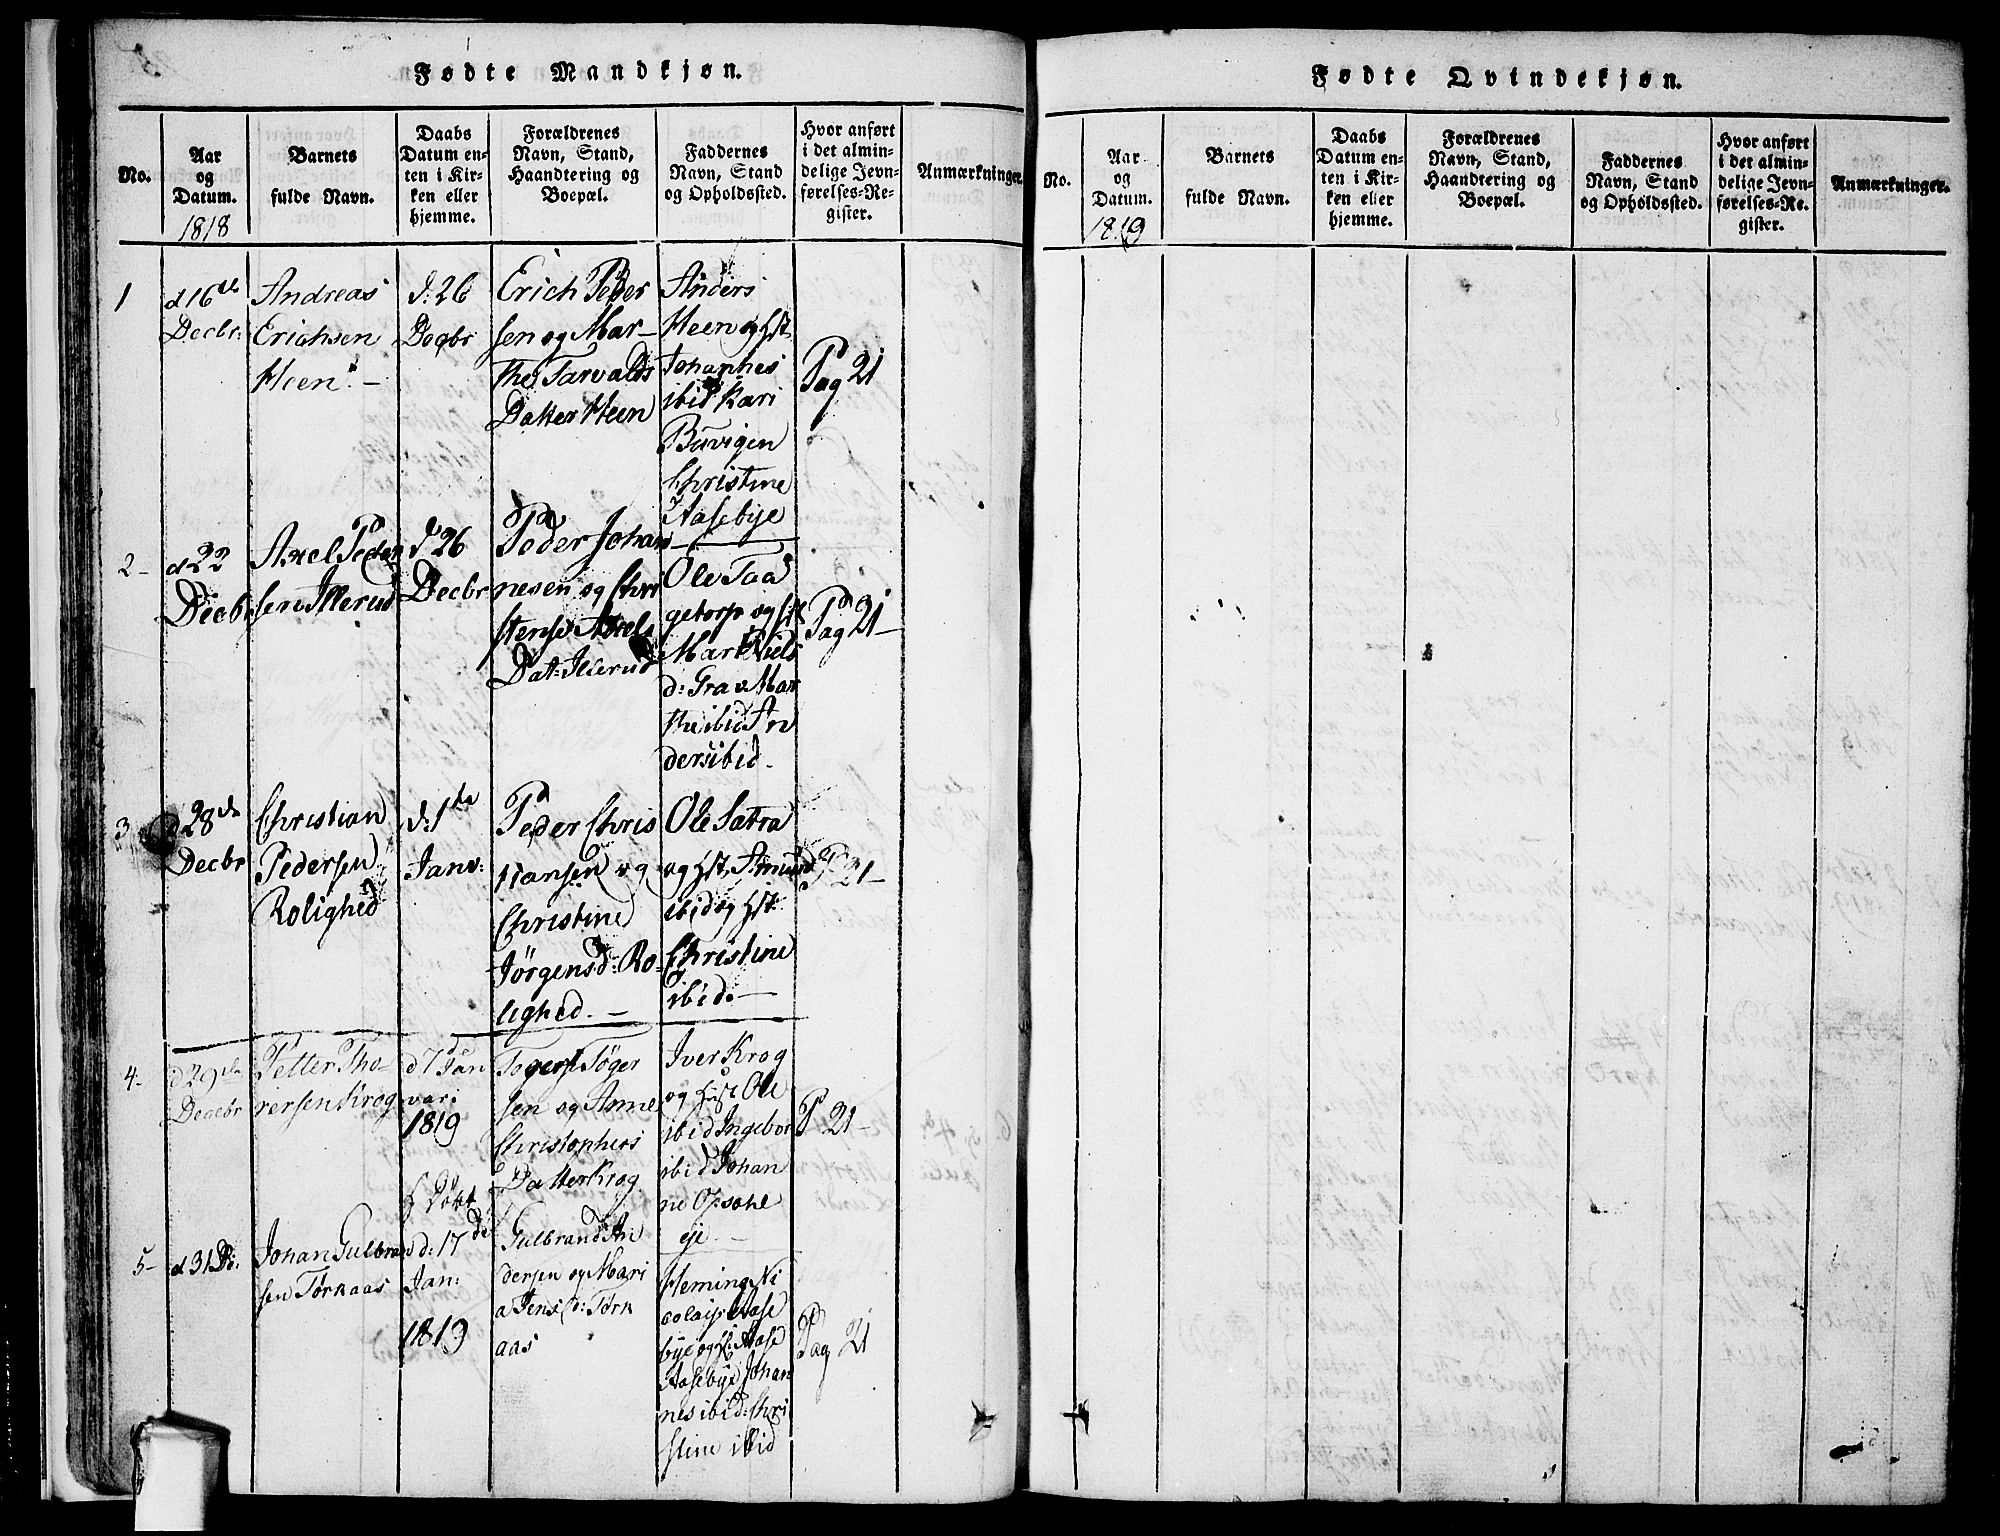 Fødte Mandkjøn.
No.
Aar
og
Datum.
1818
Barnets
fulde Navn.
Daabs
Datum en-
ten i Kir-
ken eller
hjemme.
Forældrenes
Navn, Stand,
Haandtering og
Boepæl.
Faddernes
Navn, Stand
og Opholdssted.
Hvor anført
i det almin-
delige Jevn-
førelses-Re-
gister.
Anmærkninger.
1
d 16de
Decbr:
Andreas
Erichsen
Heen. -
d: 26
Decbr
Erich Peder
sen og Mar-
the Tarvalds
Datter Heen
Anders
Heen og Hst.
Johannes
ibid Kari
Buvigen
Christine
Aasebye
Pag 21
2-
d 22
Decbr
Axel Peder
sen Illerud
d 26
Decbr
Peder Johan
nesen og Chri
stense Axels
Dat: Illerud
Ole Taa
getorp og Hst
Mari Niels
d: Grav Mar
the ibid An
ders ibid -
Pag 21-
3
d 28de
Decbr
Christian
Pedersen
Rolighed
d: 1te
Janv:
Peder Chris
tiansen og
Christine
Jørgensd: Ro-
lighed. -
Ole Sætra
og Hst. Amund
ibid og Hst
Christine
ibid. -
P 21-
4-
d 29de
Decebr
Petter Tho-
rersen Krog
d 7 Jan
vari
1819
Sen og Anne
Christophers
Datter Krog
Iver Krog
og Hust Ole
ibid Ingebor
ibid Johan
ne Opsahl
eje -
P 21-
5-
d 31 D:
Johan Gulbran
sen Tørkaas
d: 17de
Jan:
1819
Gulbrand An
dersen og Mari
a Jens d: Tørk
aas
Fleming Ni
colais Aase
bye og H: Aase
Aasebye Johan
nes ibid: Chri
stine ibid
Pag 21
Fødte Qvindekjøn.
No.
Aar
og
Datum.
1819
Barnets
fulde Navn.
Daabs
Datum en-
ten i Kir-
ken eller
hjemme.
Forældrenes
Navn, Stand,
Haandtering og
Boepæl.
Faddernes
Navn, Stand
og Opholdssted.
Hvor anført
i det almin-
delige Jevn-
førelses-Re-
gister.
Anmærkninger.